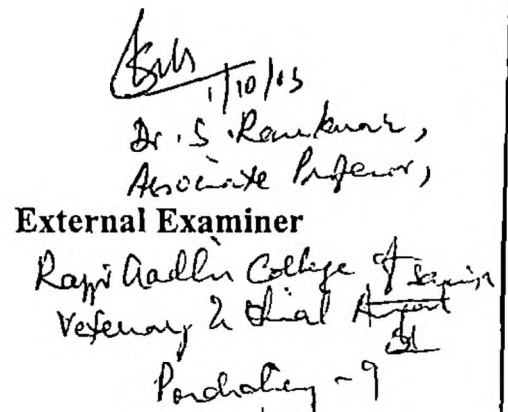 1/10/03
Dr. S. Ramkumar,
Associate Professor,
External Examiner
Rajiv Gandhi College of
Veterinary & Animal
Pondicherry - 9